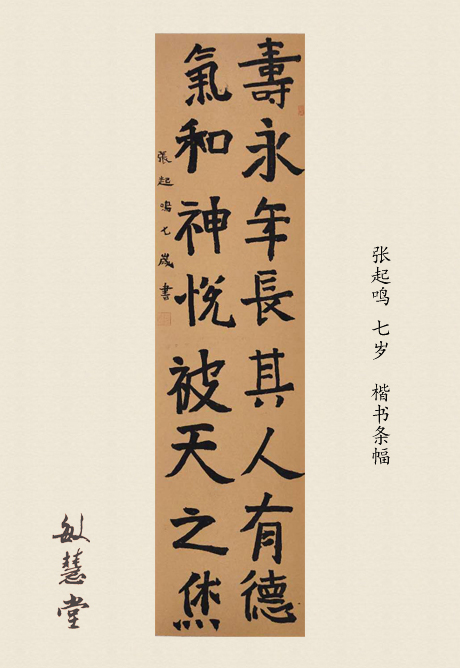 张起鸣 七岁 楷书条幅
壽永年長其人有德
氣和神悦被天之烋
張起鳴七歲書
敏慧堂